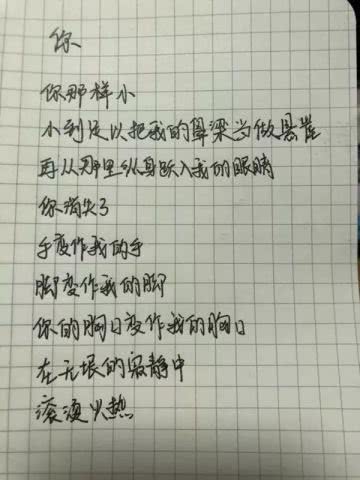 你
你那样小
小到足以把我的鼻梁当做悬崖
再从那里纵身跃入我的眼睛
你消失了
手变作我的手
脚变作我的脚
你的胸口变作我的胸口
在无垠的寂静中
滚烫火热